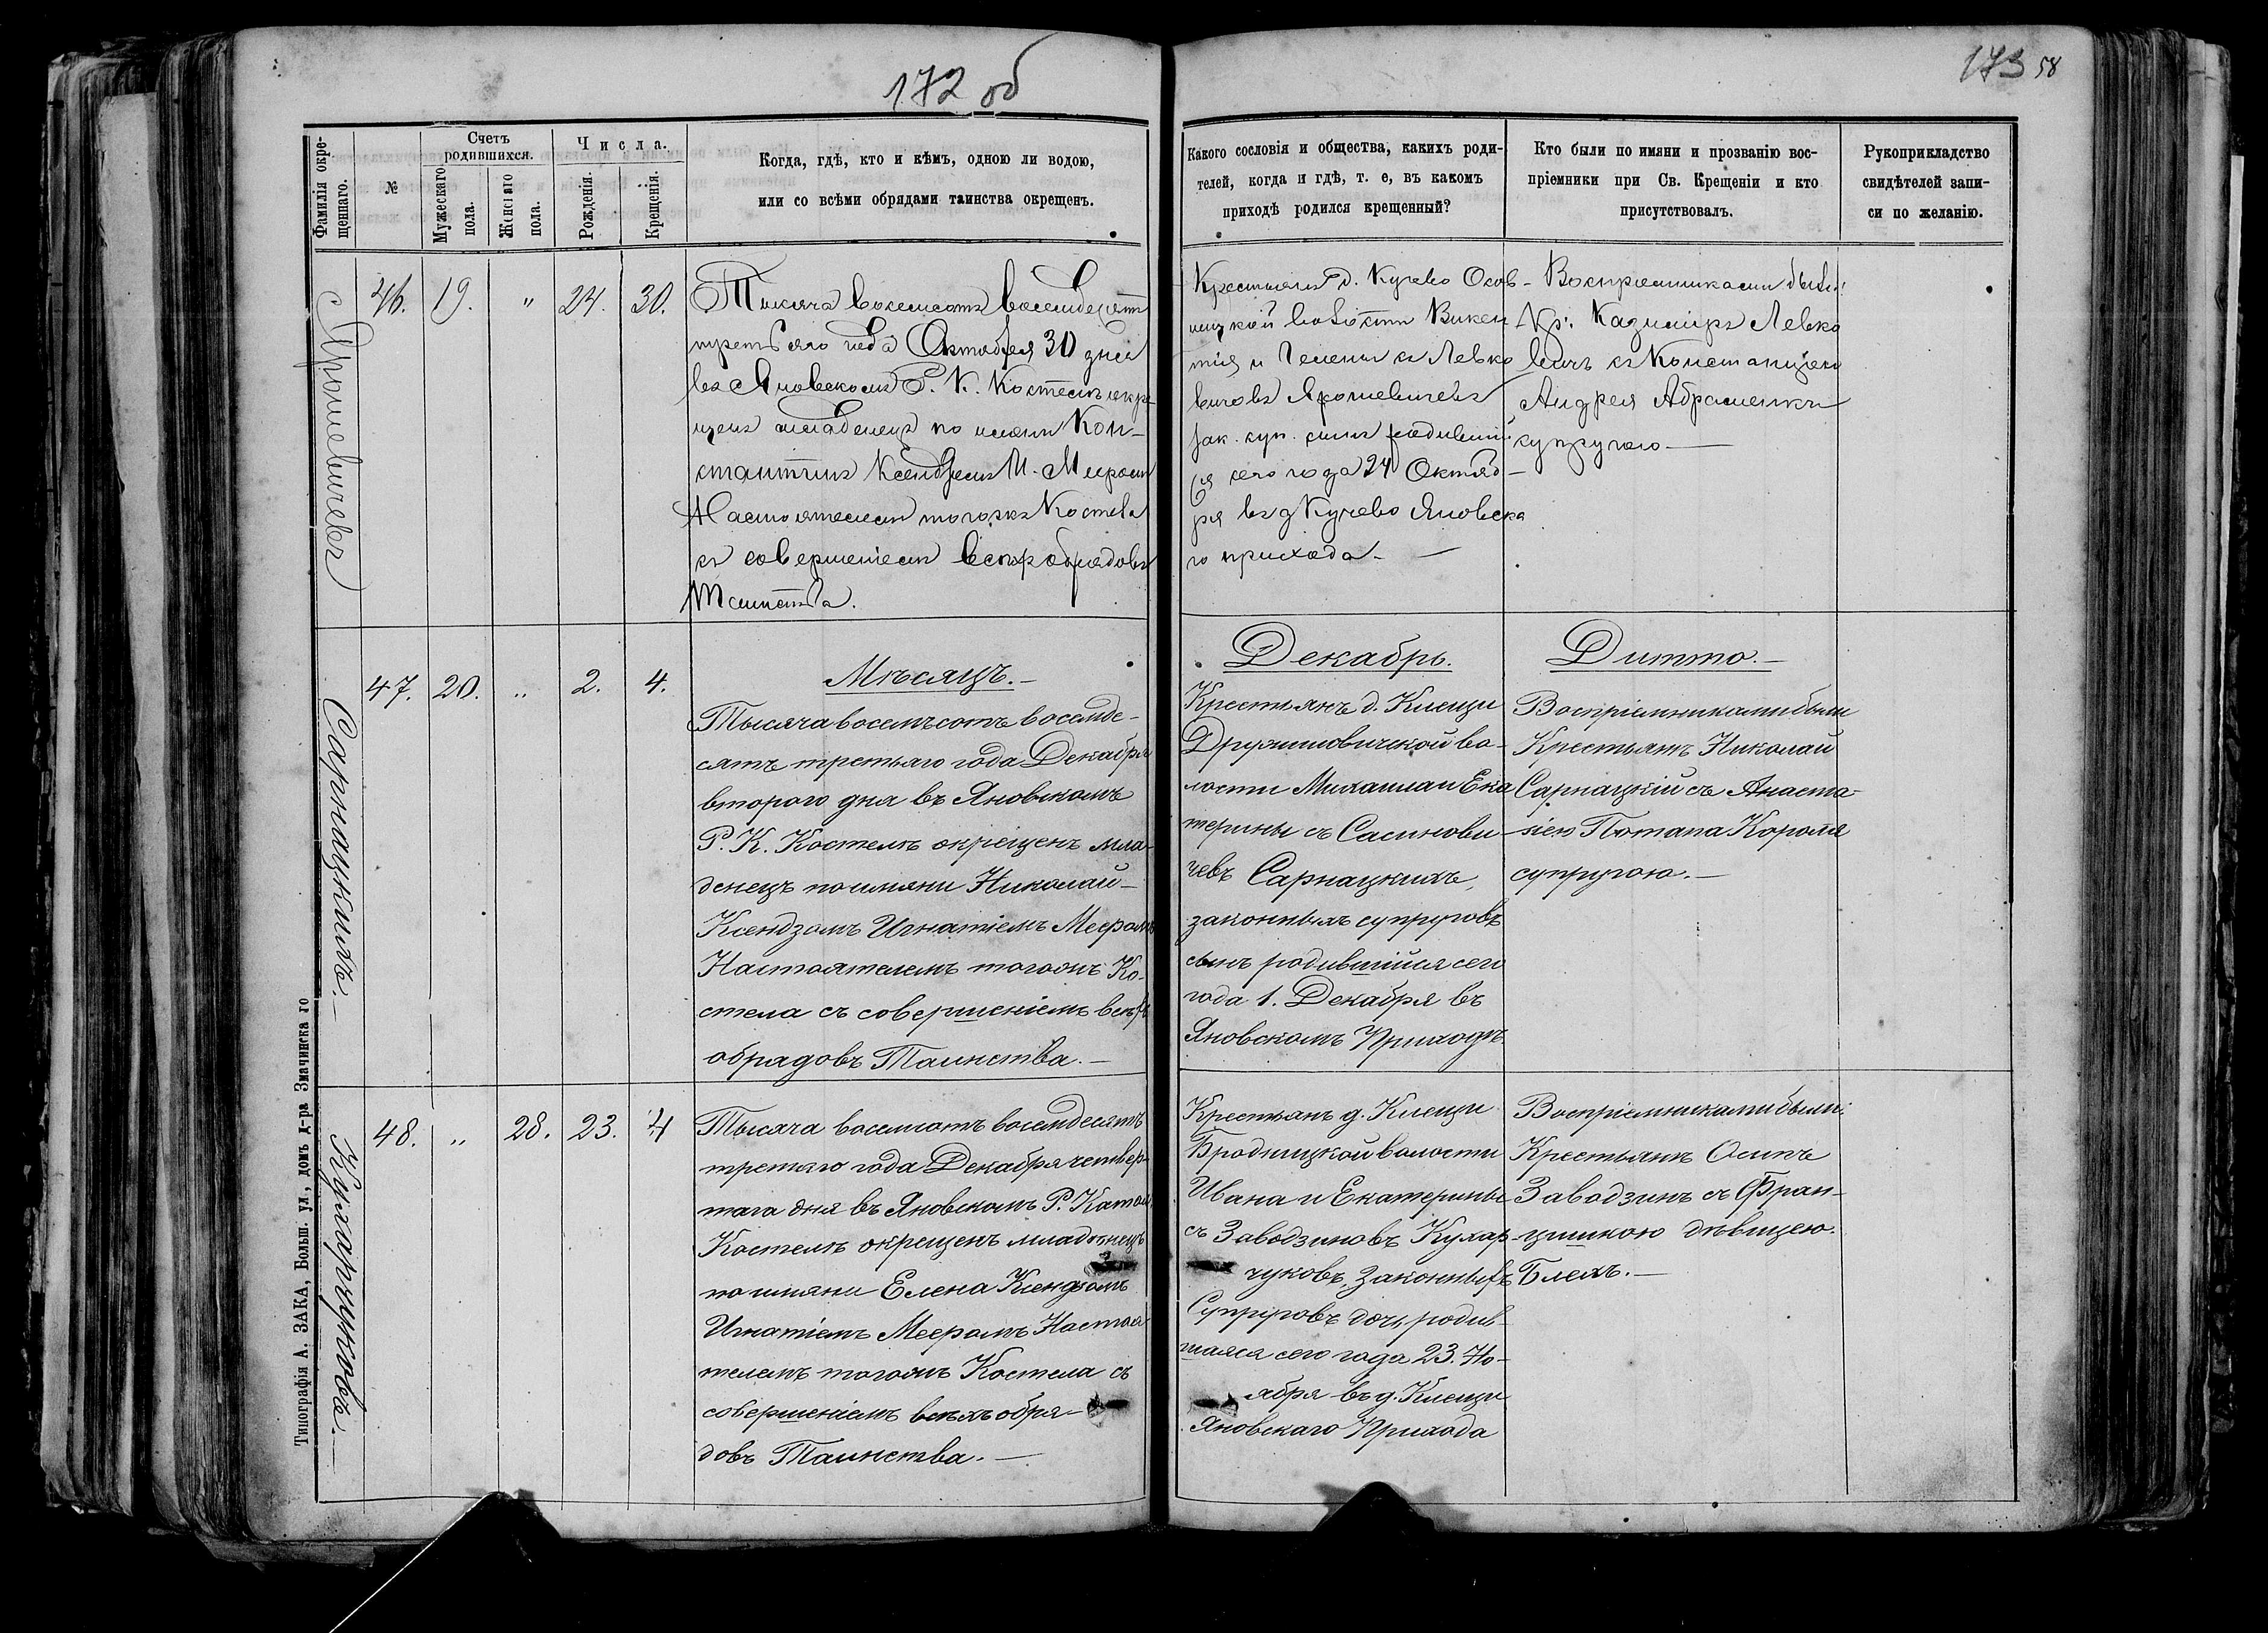 172 об
173 58
Фамилія окре-
щеннаго.
№
Счетъ
родившихся.
Мужескаго
пола.
Женскаго
пола.
Числа.
Рожденія.
Крещенія.
Когда, гдѣ, кто и кѣмъ, одною ли водою,
или со всѣми обрядами таинства окрещенъ.
Какого сословія и общества, какихъ роди-
телей, когда и гдѣ, т. е, въ какомъ
приходѣ родился крещенный?
Кто были по имяни и прозванію вос-
пріемники при Св. Крещеніи и кто
присутствовалъ.
Рукоприкладство
свидѣтелей запи-
си по желанію.
Ярошевичевъ
46. 19. " 24. 30.
Тысяча восемсотъ восемдесятъ
третьяго года Октября 30 дня
въ Яновскомъ Р. К. Костелѣ окре-
щенъ младенецъ по имяни Кон-
стантинъ Ксендзомъ И. Мееромъ
Настоятелемъ тогожъ Костела
съ совершеніемъ всѣхъ обрядовъ
Таинства.
Крестьянъ д. Кучево Осов-
ницкой волости Викен
тія и Гелены съ Левко
вичовъ Ярошевичевъ
зак. суп. сынъ родивший
ся сего года 24 Октяб-
ря въ д Кучево Яновска
го прихода.
Воспріемниками были:
Кр: Казиміръ Левко
вичъ съ Констанціею
Андрея Абраменки
супругою
Сарнацкихъ.
47. 20. " 2. 4.
Мѣсяцъ.
Тысяча восемъсотъ восемде-
сятъ третьяго года Декабря
второго дня въ Яновскомъ
Р. К. Костелѣ окрещенъ мла-
денецъ по имяни Николай
Ксендзомъ Игнатіемъ Мееромъ
Настоятелемъ тогожъ Ко-
стела съ совершеніемъ всѣхъ
обрядовъ Таинства.
Декабрь.
Крестьянъ д. Клещи
Дружиловичской во-
лости Михаила и Ека
терины съ Сасинови-
чевъ Сарнацкихъ,
законныхъ супруговъ
сынъ родившійся сего
года 1. Декабря въ
Яновскомъ Приходѣ
Дитто.
Воспріемниками были
Крестьянъ Николай
Сарнацкій съ Анаста-
зіею Потапа Короля
супругою.
Кухарчуковъ.
48. " 28. 23. 4
Тысяча восемсотъ восемдесятъ
третяго года Декабря четвер-
таго дня въ Яновскомъ Р. Катол.
Костелѣ окрещенъ младенецъ
по имяни Елена Ксендзомъ
Игнатіемъ Мееромъ Настоя
телемъ тогожъ Костела съ
совершеніемъ всѣхъ обря-
довъ Таинства.
Крестьянъ д. Клещи
Бродницкой волости
Ивана и Екатерины
съ Заводзиновъ Кухар-
чуковъ, Законныхъ
Супруговъ дочь родив-
шаяся сего года 23. Но-
ября въ д. Клещи
Яновскаго Прихода
Воспріемниками были:
Крестьянъ Осипъ
Заводзинъ съ Фран-
цишкою дѣвицею.
Блехъ.
Типографія А. ЗАКА, Больш. ул., домъ д-ра Значинска го